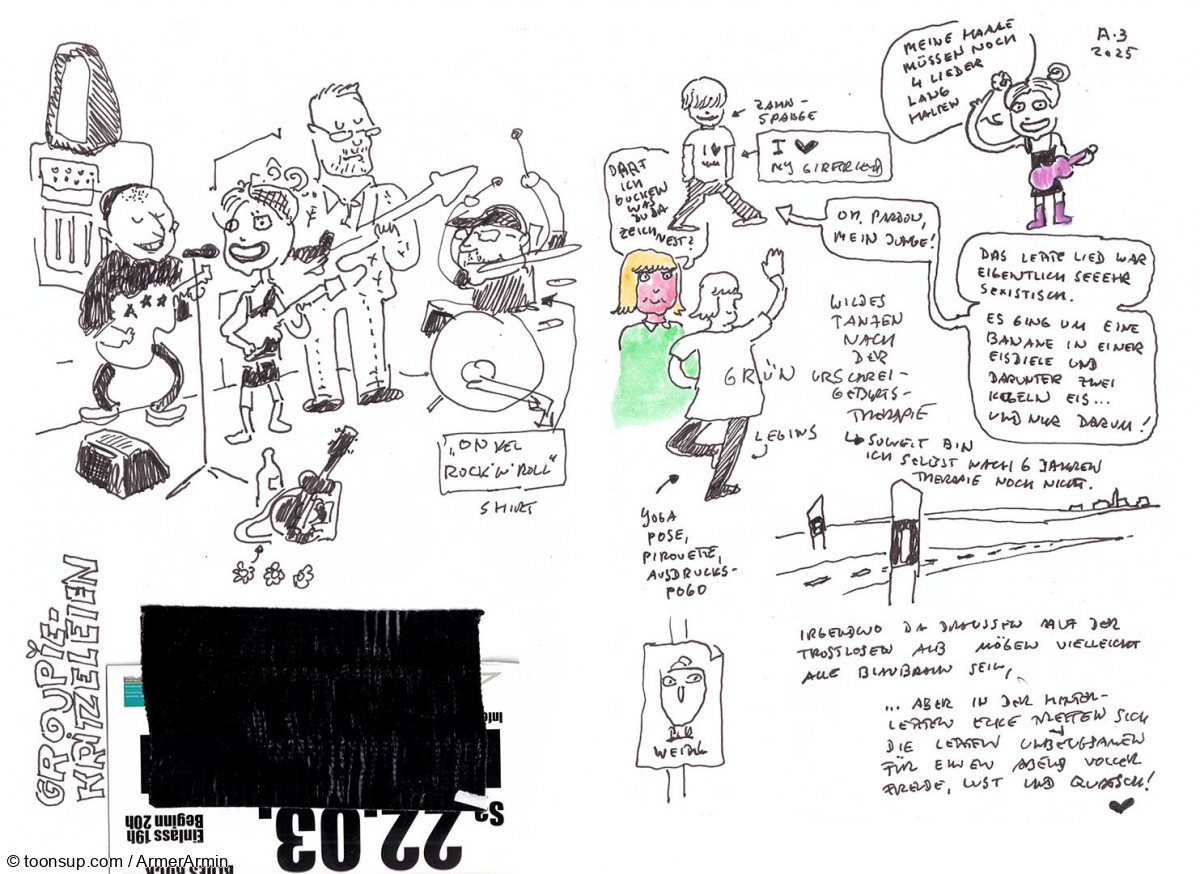 "ONKEL
ROCK'N'ROLL"
SHIRT
GROUPIE-
KRITZELEIEN
Sa
22.03.
Einlass 19h
Beginn 20h
© toonsup.com / ArmerArmin
A.3
2025
MEINE HAARE
MÜSSEN NOCH
4 LIEDER
LANG
HALTEN
ZAHN-
SPANGE
I ♥
I ♥
MY GIRLFRIEND
DARF
ICH
GUCKEN
WAS
DU DA
ZEICHNEST?
OH, PARDON,
MEIN JUNGE!
DAS LETZTE LIED WAR
EIGENTLICH SEEEHR
SEXISTISCH.
ES GING UM EINE
BANANE IN EINER
EISDIELE UND
DARUNTER ZWEI
KUGELN EIS...
UND NUR DARUM!
WILDES
TANZEN
NACH
DER
URSCHREI-
GEBURTS-
THERAPIE
GRÜN
LEGINS
SOWEIT BIN
ICH SELBST NACH 6 JAHREN
THERAPIE NOCH NICHT.
YOGA
POSE,
PIROUETTE,
AUSDRUCKS-
POGO
WEIDEL
IRGENDWO DA DRAUSSEN AUF DER
TROSTLOSEN ALB MÖGEN VIELLEICHT
ALLE BLAUBRAUN SEIN,
... ABER IN DER HINTER-
LETZTEN ECKE TREFFEN SICH
DIE LETZTEN UNBEUGSAMEN
FÜR EINEN ABEND VOLLER
FREUDE, LUST UND QUATSCH!
♥